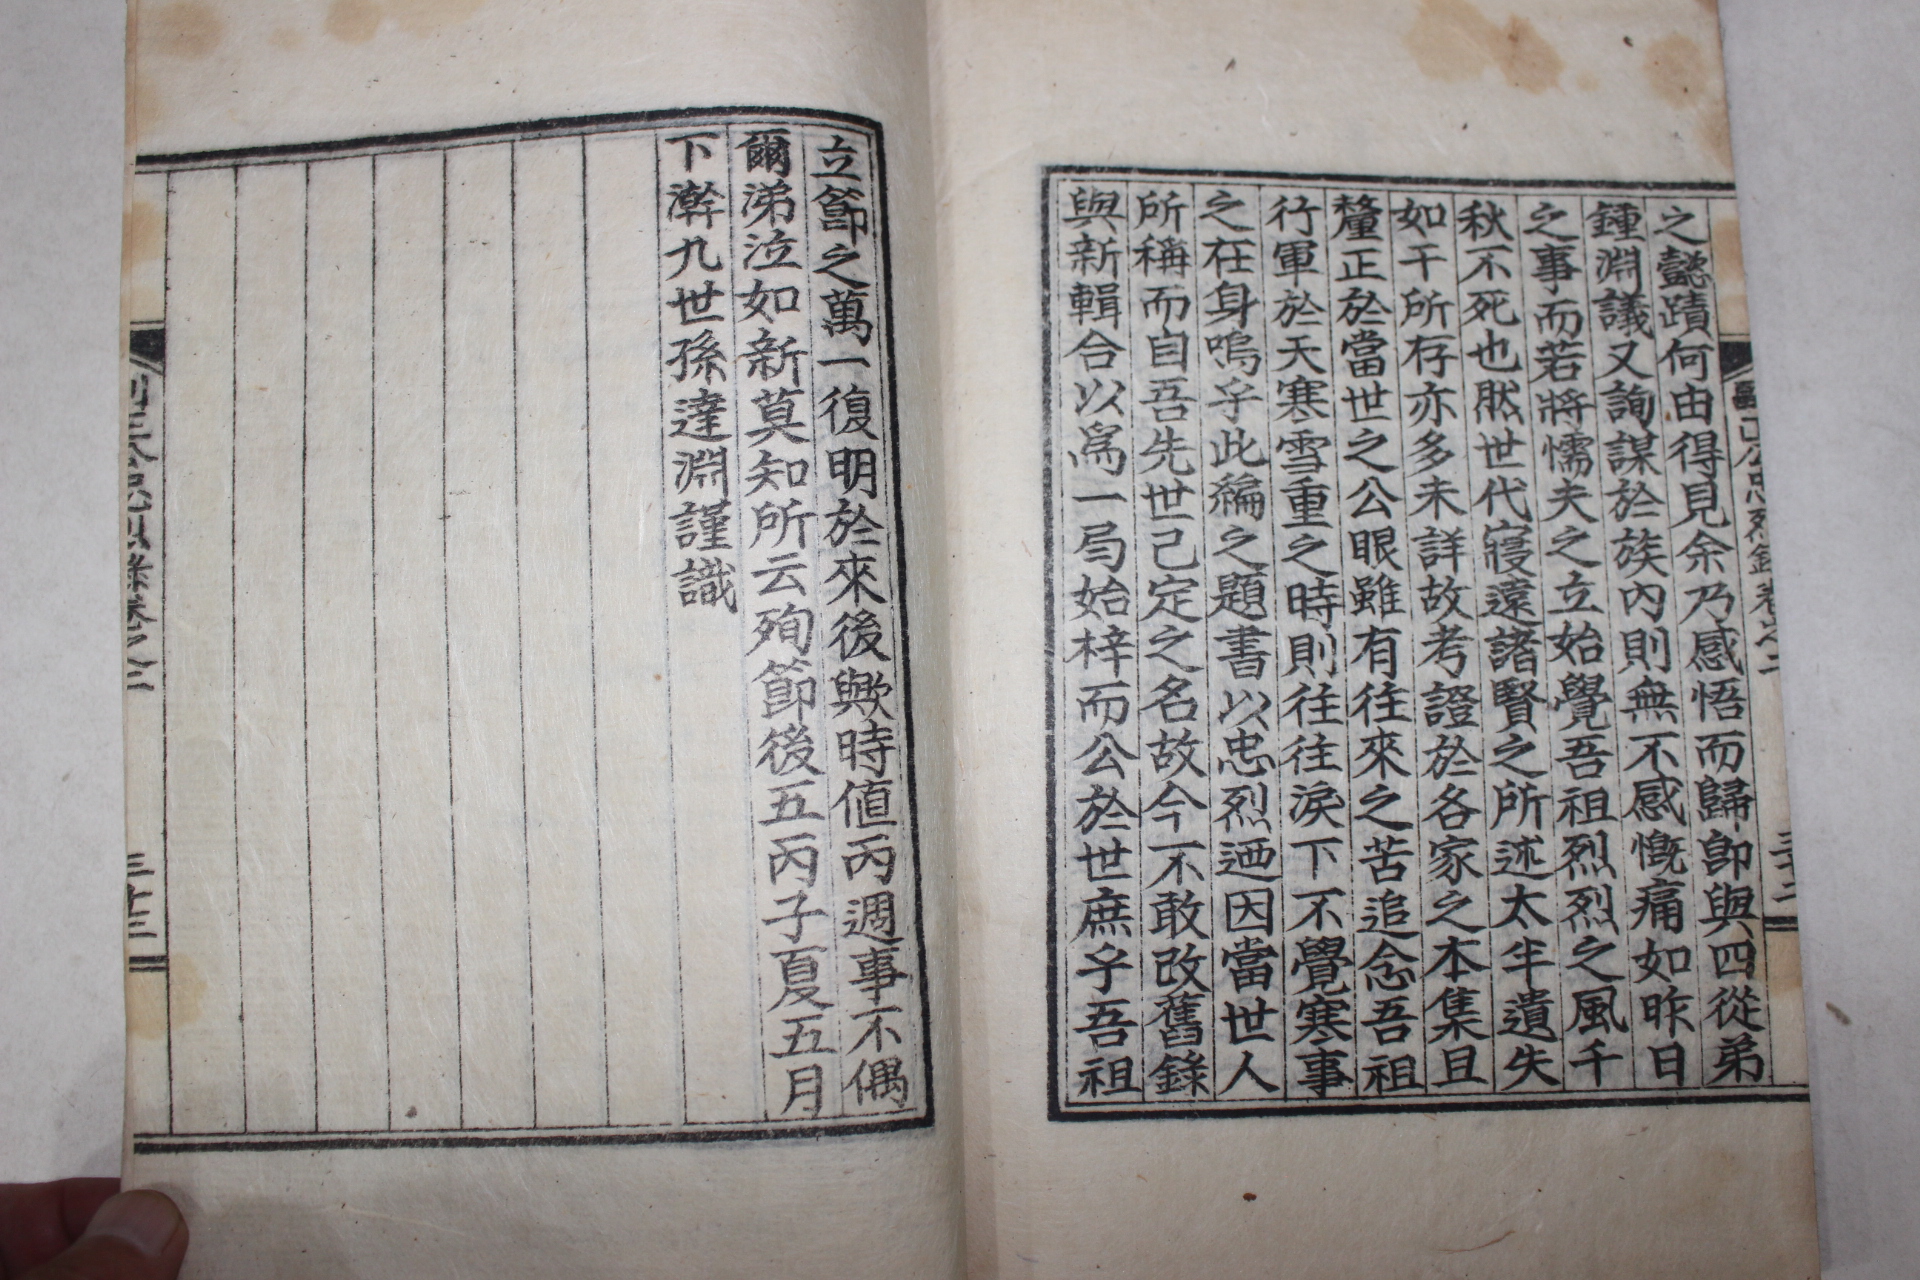 之懿蹟何由得見余乃感悟而歸卽與四從弟
鍾淵議又詢謀於族內則無不感慨痛如昨日
之事而若將懦夫之立始覺吾祖烈烈之風千
秋不死也然世代寢遠諸賢之所述太半遺失
如干所存亦多未詳故考證於各家之本集且
釐正於當世之公眼雖有往來之苦追念吾祖
行軍於天寒雪重之時則往往淚下不覺寒事
之在身嗚乎此編之題書以忠烈迺因當世人
所稱而自吾先世己定之名故今不敢改舊錄
與新輯合以爲一局始梓而公於世庶乎吾祖
立節之萬一復明於來後歟時値丙週事不偶
爾涕泣如新莫知所云殉節後五丙子夏五月
下澣九世孫達淵謹識
公忠烈錄卷之二
三十三